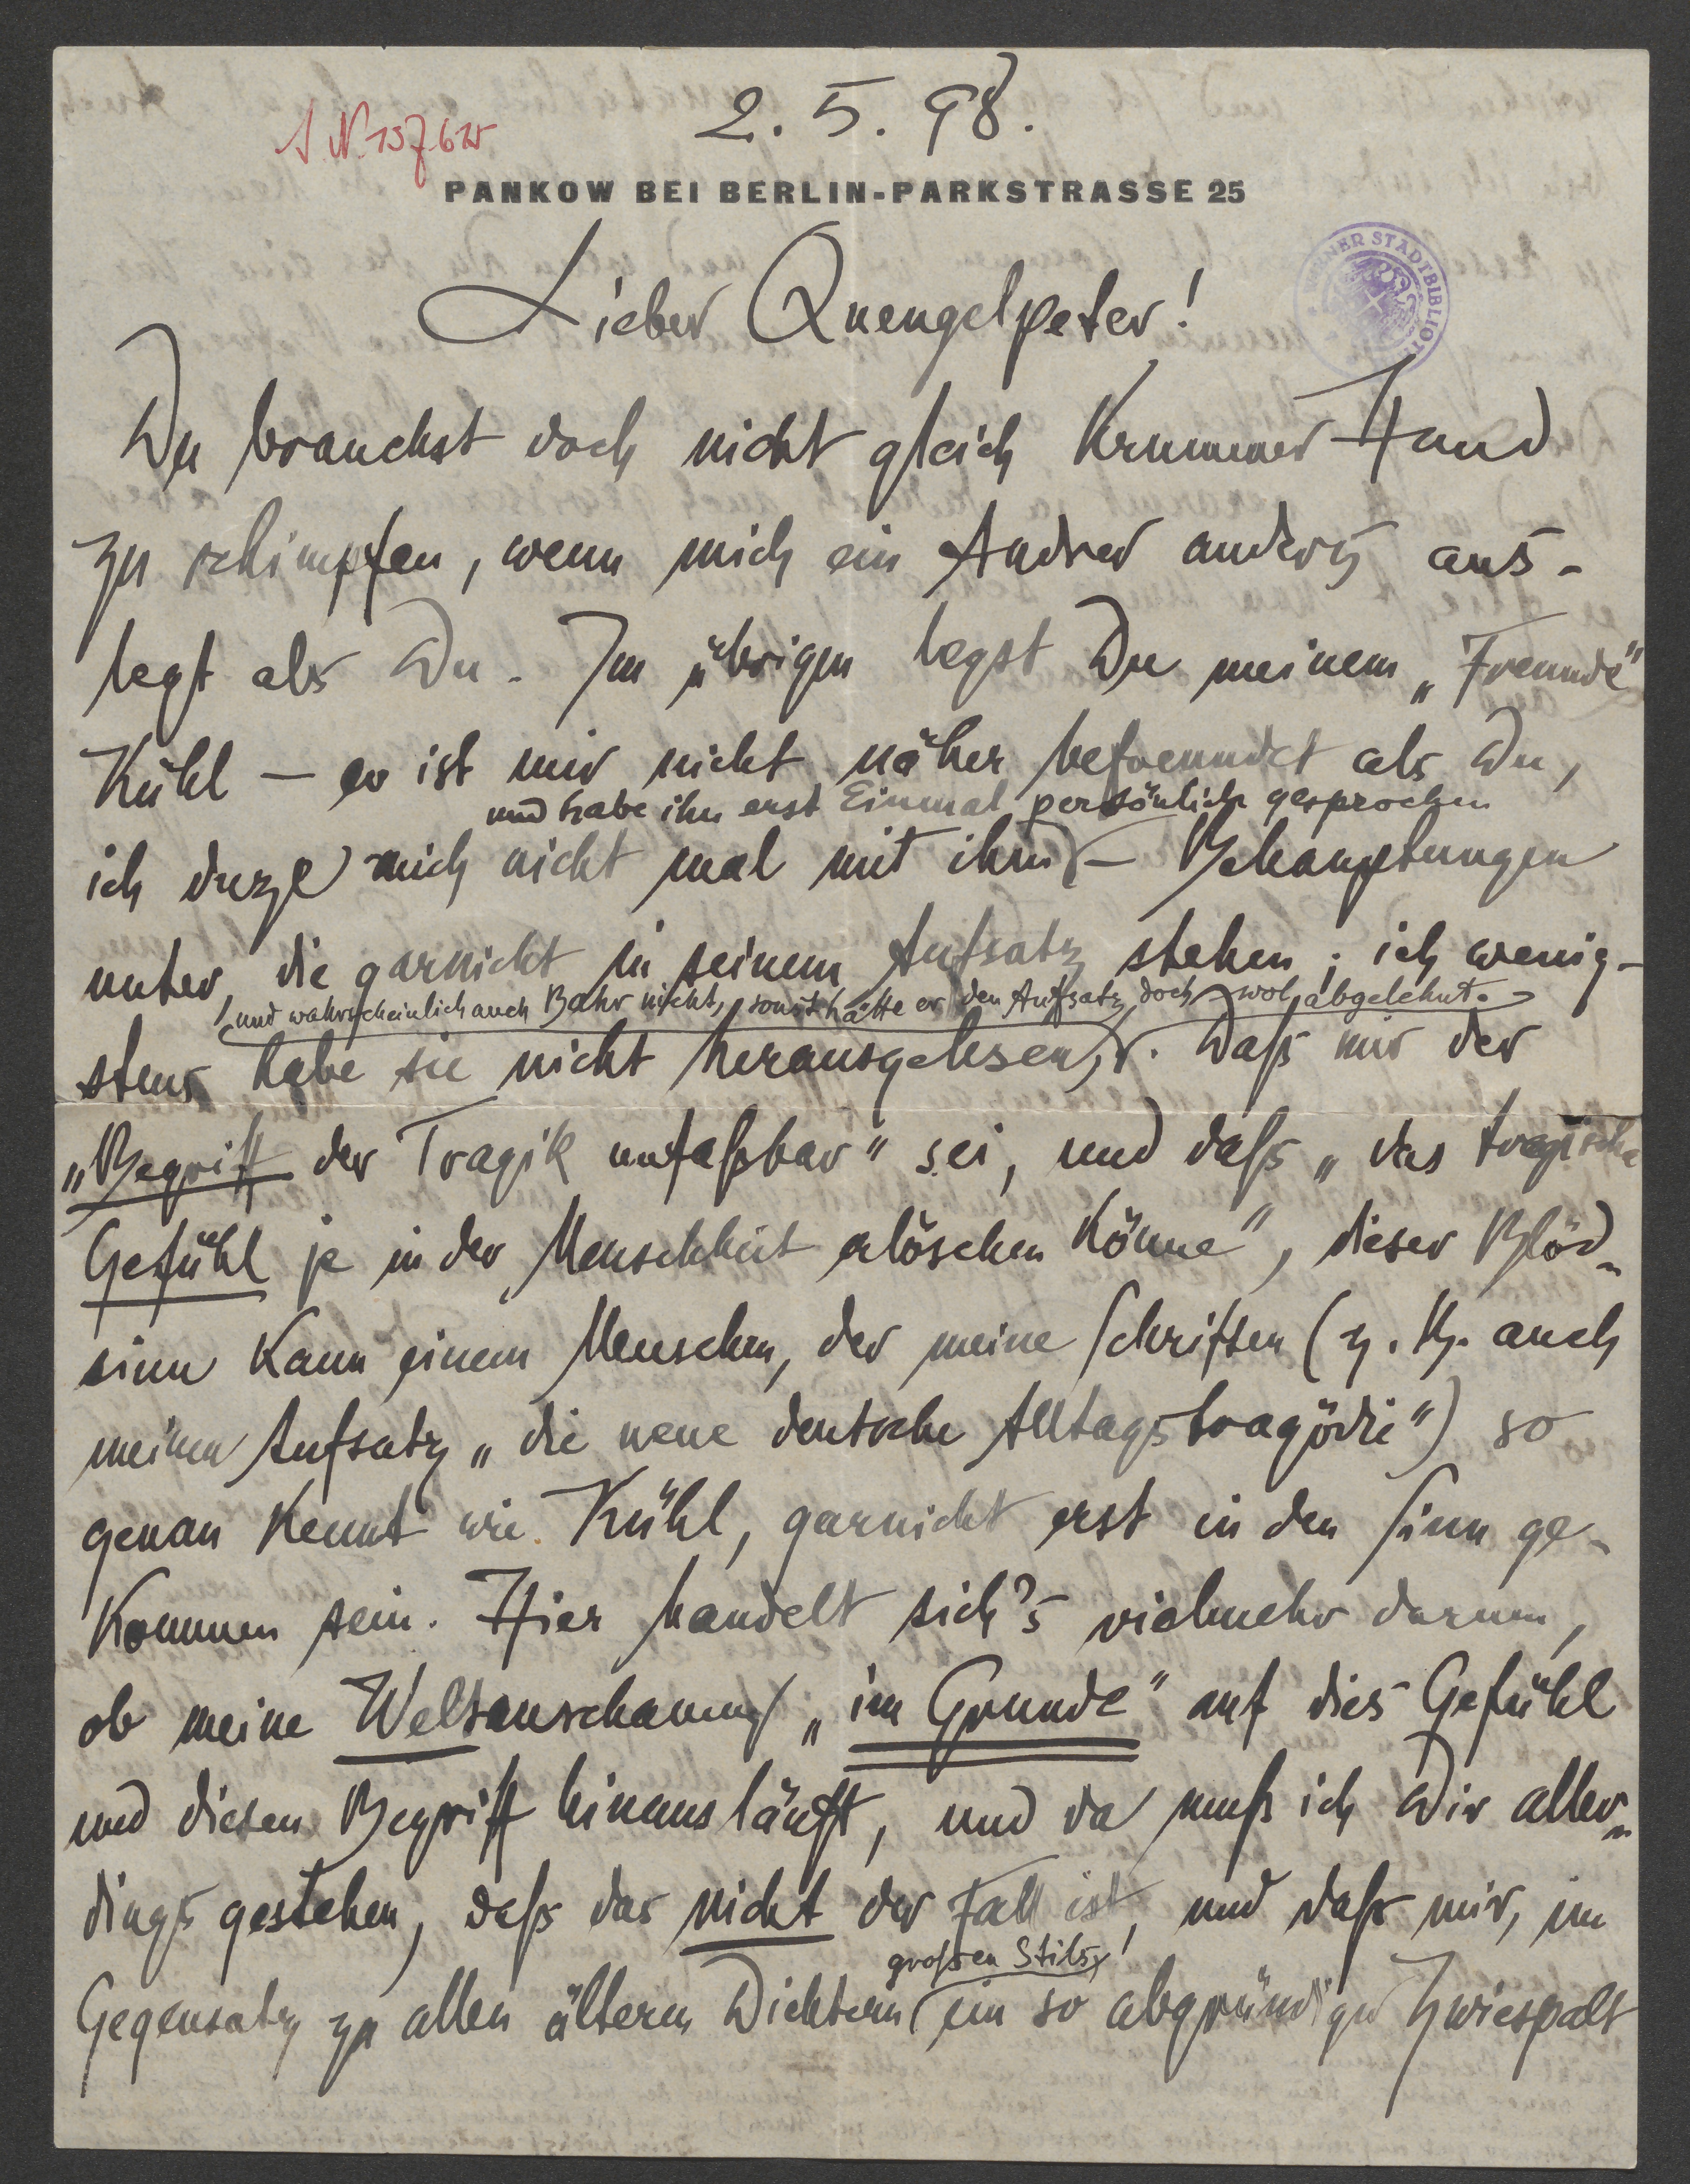 2. 5. 98.
PANKOW BEI BERLIN-PARKSTRASSE 25
WIENER STADTBIBLIOT
Lieber Quengelpeter!
Du brauchst doch nicht gleich krummer Hand
zu schimpfen, wenn mich ein Andrer anders aus-
legt als Du. Im übrigen legst Du meinem „Freunde“
Kühl — er ist mir nicht näher befreundet als Du,
und habe ihn erst Einmal persönlich gesprochen
ich duze mich nicht mal mit ihm — Behauptungen
unter, die garnicht in seinem Aufsatz stehen; ich wenig-
und wahrscheinlich auch Bahr nicht, sonst hätte er den Aufsatz doch wol abgelehnt.
stens habe sie nicht herausgelesen. Daß mir der
„Begriff der Tragik unfaßbar“ sei, und daß „das tragische
Gefühl je in der Menschheit erlöschen könne“, dieser Blöd-
sinn kann einem Menschen, der meine Schriften (z. B. auch
meinen Aufsatz „die neue deutsche Alltagstragödie“) so
genau kennt wie Kühl, garnicht erst in den Sinn ge-
kommen sein. Hier handelt sich's vielmehr darum,
ob meine Weltanschauung „im Grunde“ auf dies Gefühl
und diesen Begriff hinausläuft, und da muß ich Dir aller-
dings gestehen, daß das nicht der Fall ist, und daß mir, im
großen Stils!
Gegensatz zu allen ältern Dichtern ein so abgründiger Zwiespalt